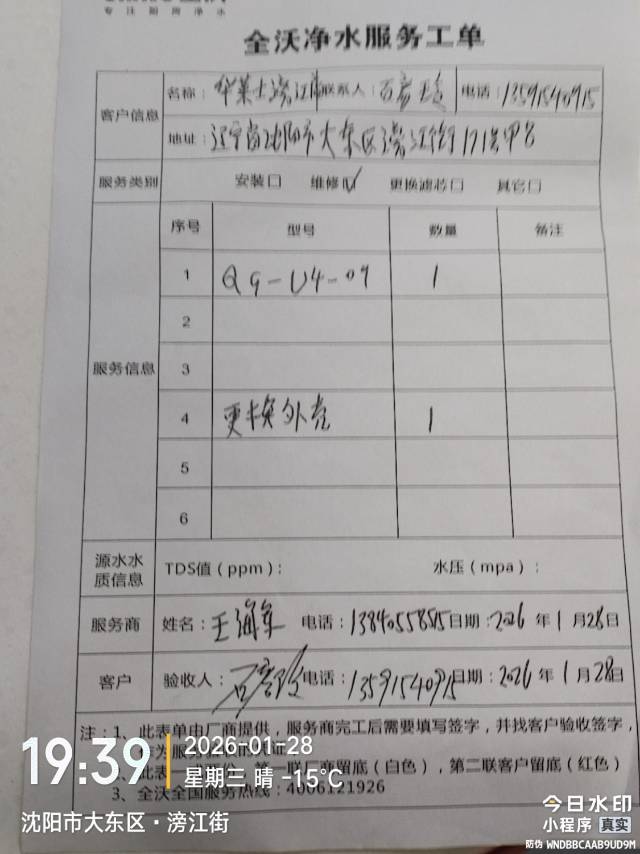 专注厨房净水
全沃净水服务工单
客户信息
名称：华莱士滂江街 联系人：石彦玲 电话：13591540915
地址：辽宁省沈阳市大东区滂江街171号甲
服务类别 安装□ 维修☑ 更换滤芯□ 其它□
服务信息
序号 型号 数量 备注
1 QG-U4-09 1
2
3
4 更换外壳 1
5
6
源水水质信息 TDS值（ppm）： 水压（mpa）：
服务商 姓名：王海军 电话：13840558515 日期：2026 年 1 月 28 日
客户 验收人：石彦玲 电话：13591540915 日期：2026 年 1 月 28 日
注：1、此表单由厂商提供，服务商完工后需要填写签字，并找客户验收签字，
为服务
2、此表 第一联厂商留底（白色），第二联客户留底（红色）
3、全沃全国服务热线：4006121926
19:39
2026-01-28
星期三 晴 -15℃
沈阳市大东区·滂江街
今日水印
小程序 真实
防伪 WNDBBCAAB9UD9M